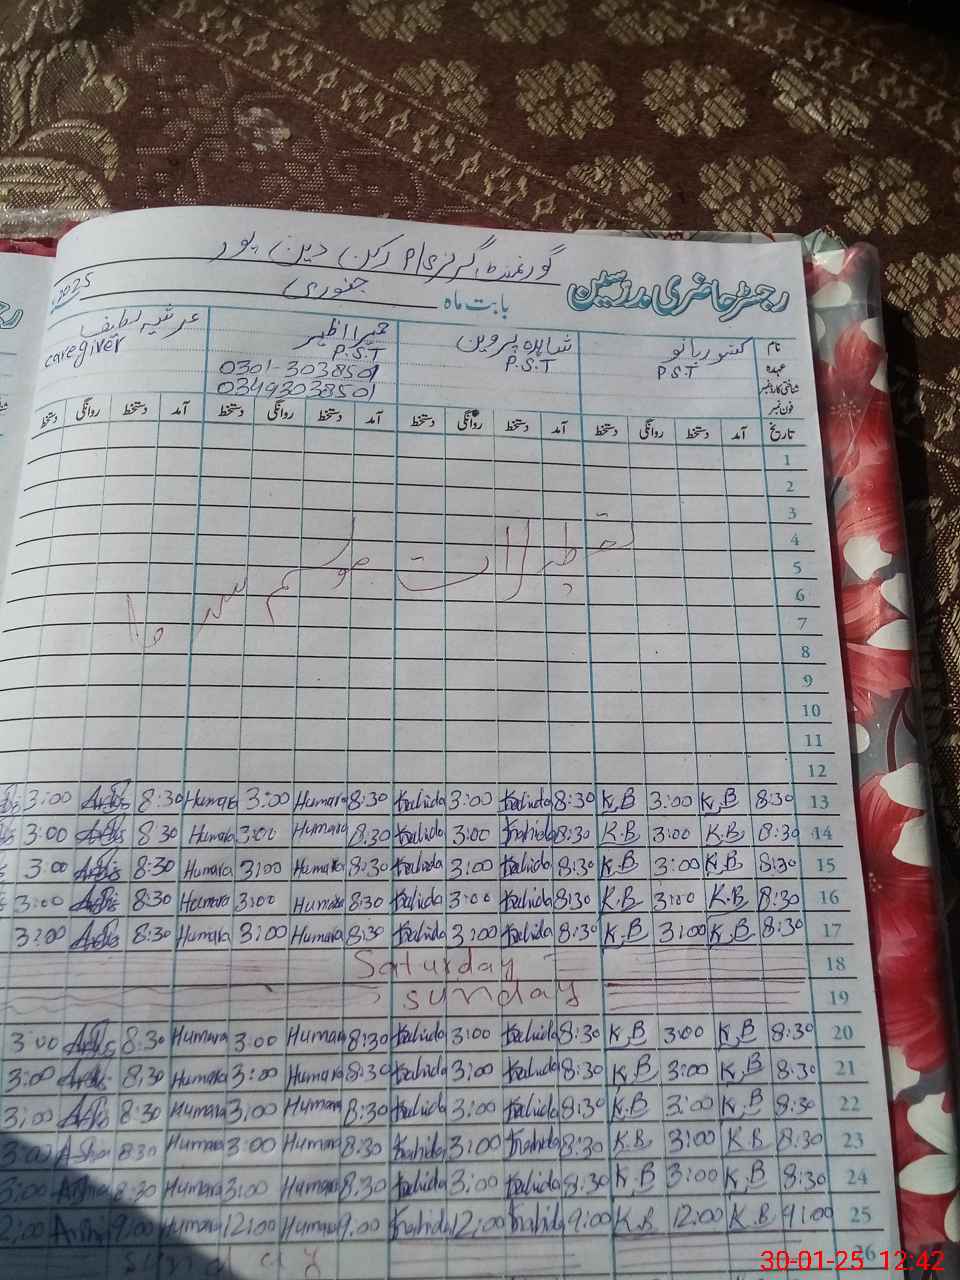 گورنمنٹ گرلز P/S رکن دین پور
رجسٹر حاضری مدرسین
بابت ماہ جنوری 2025
نام کنور بانو شاہدہ پروین حمیرا اظہر عرشیہ لطیف
عہدہ P.S.T P.S.T P.S.T caregiver
شناختی کارڈ نمبر 0301-3038501
فون نمبر 03493038501
تاریخ آمد دستخط روانگی دستخط آمد دستخط روانگی دستخط آمد دستخط روانگی دستخط آمد دستخط روانگی دستخط
1
2
3
4
تعطیلات موسم سرما
5
6
7
8
9
10
11
12
13 8:30 K.B 3:00 K.B 8:30 3:00 8:30 Humara 3:00 Humara 8:30 3:00
14 8:30 K.B 3:00 K.B 8:30 3:00 8:30 Humara 3:00 Humara 8:30 3:00
15 8:30 K.B 3:00 K.B 8:30 3:00 8:30 Humara 3:00 Humara 8:30 3:00
16 8:30 K.B 3:00 K.B 8:30 3:00 8:30 Humara 3:00 Humara 8:30 3:00
17 8:30 K.B 3:00 K.B 8:30 3:00 8:30 Humara 3:00 Humara 8:30 3:00
18 Saturday
19 Sunday
20 8:30 K.B 3:00 K.B 8:30 3:00 8:30 Humara 3:00 Humara 8:30 3:00
21 8:30 K.B 3:00 K.B 8:30 3:00 8:30 Humara 3:00 Humara 8:30 3:00
22 8:30 K.B 3:00 K.B 8:30 3:00 8:30 Humara 3:00 Humara 8:30 3:00
23 8:30 K.B 3:00 K.B 8:30 3:00 8:30 Humara 3:00 Humara 8:30 3:00
24 8:30 K.B 3:00 K.B 8:30 3:00 8:30 Humara 3:00 Humara 8:30 3:00
25 9:00 K.B 12:00 K.B 9:00 12:00 9:00 Humara 12:00 Humara 9:00 12:00
26 Sunday
30-01-25 12:42